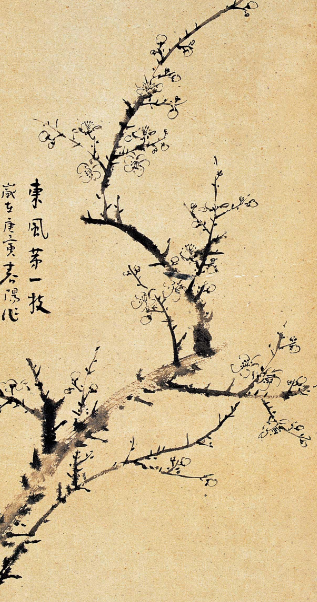 東風苐一枝
歲在庚寅春陽作